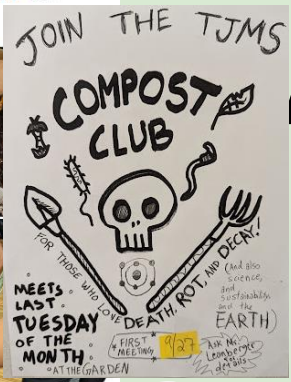 JOIN THE TJMS
COMPOST
CLUB
FOR THOSE WHO LOVE DEATH, ROT, AND DECAY!
(And also
science,
and
sustainability
and the
EARTH)
MEETS
LAST
TUESDAY
OF THE
MONTH
AT THE GARDEN
FIRST
MEETING
9/27
Ask Ms.
Leonberger
for
details